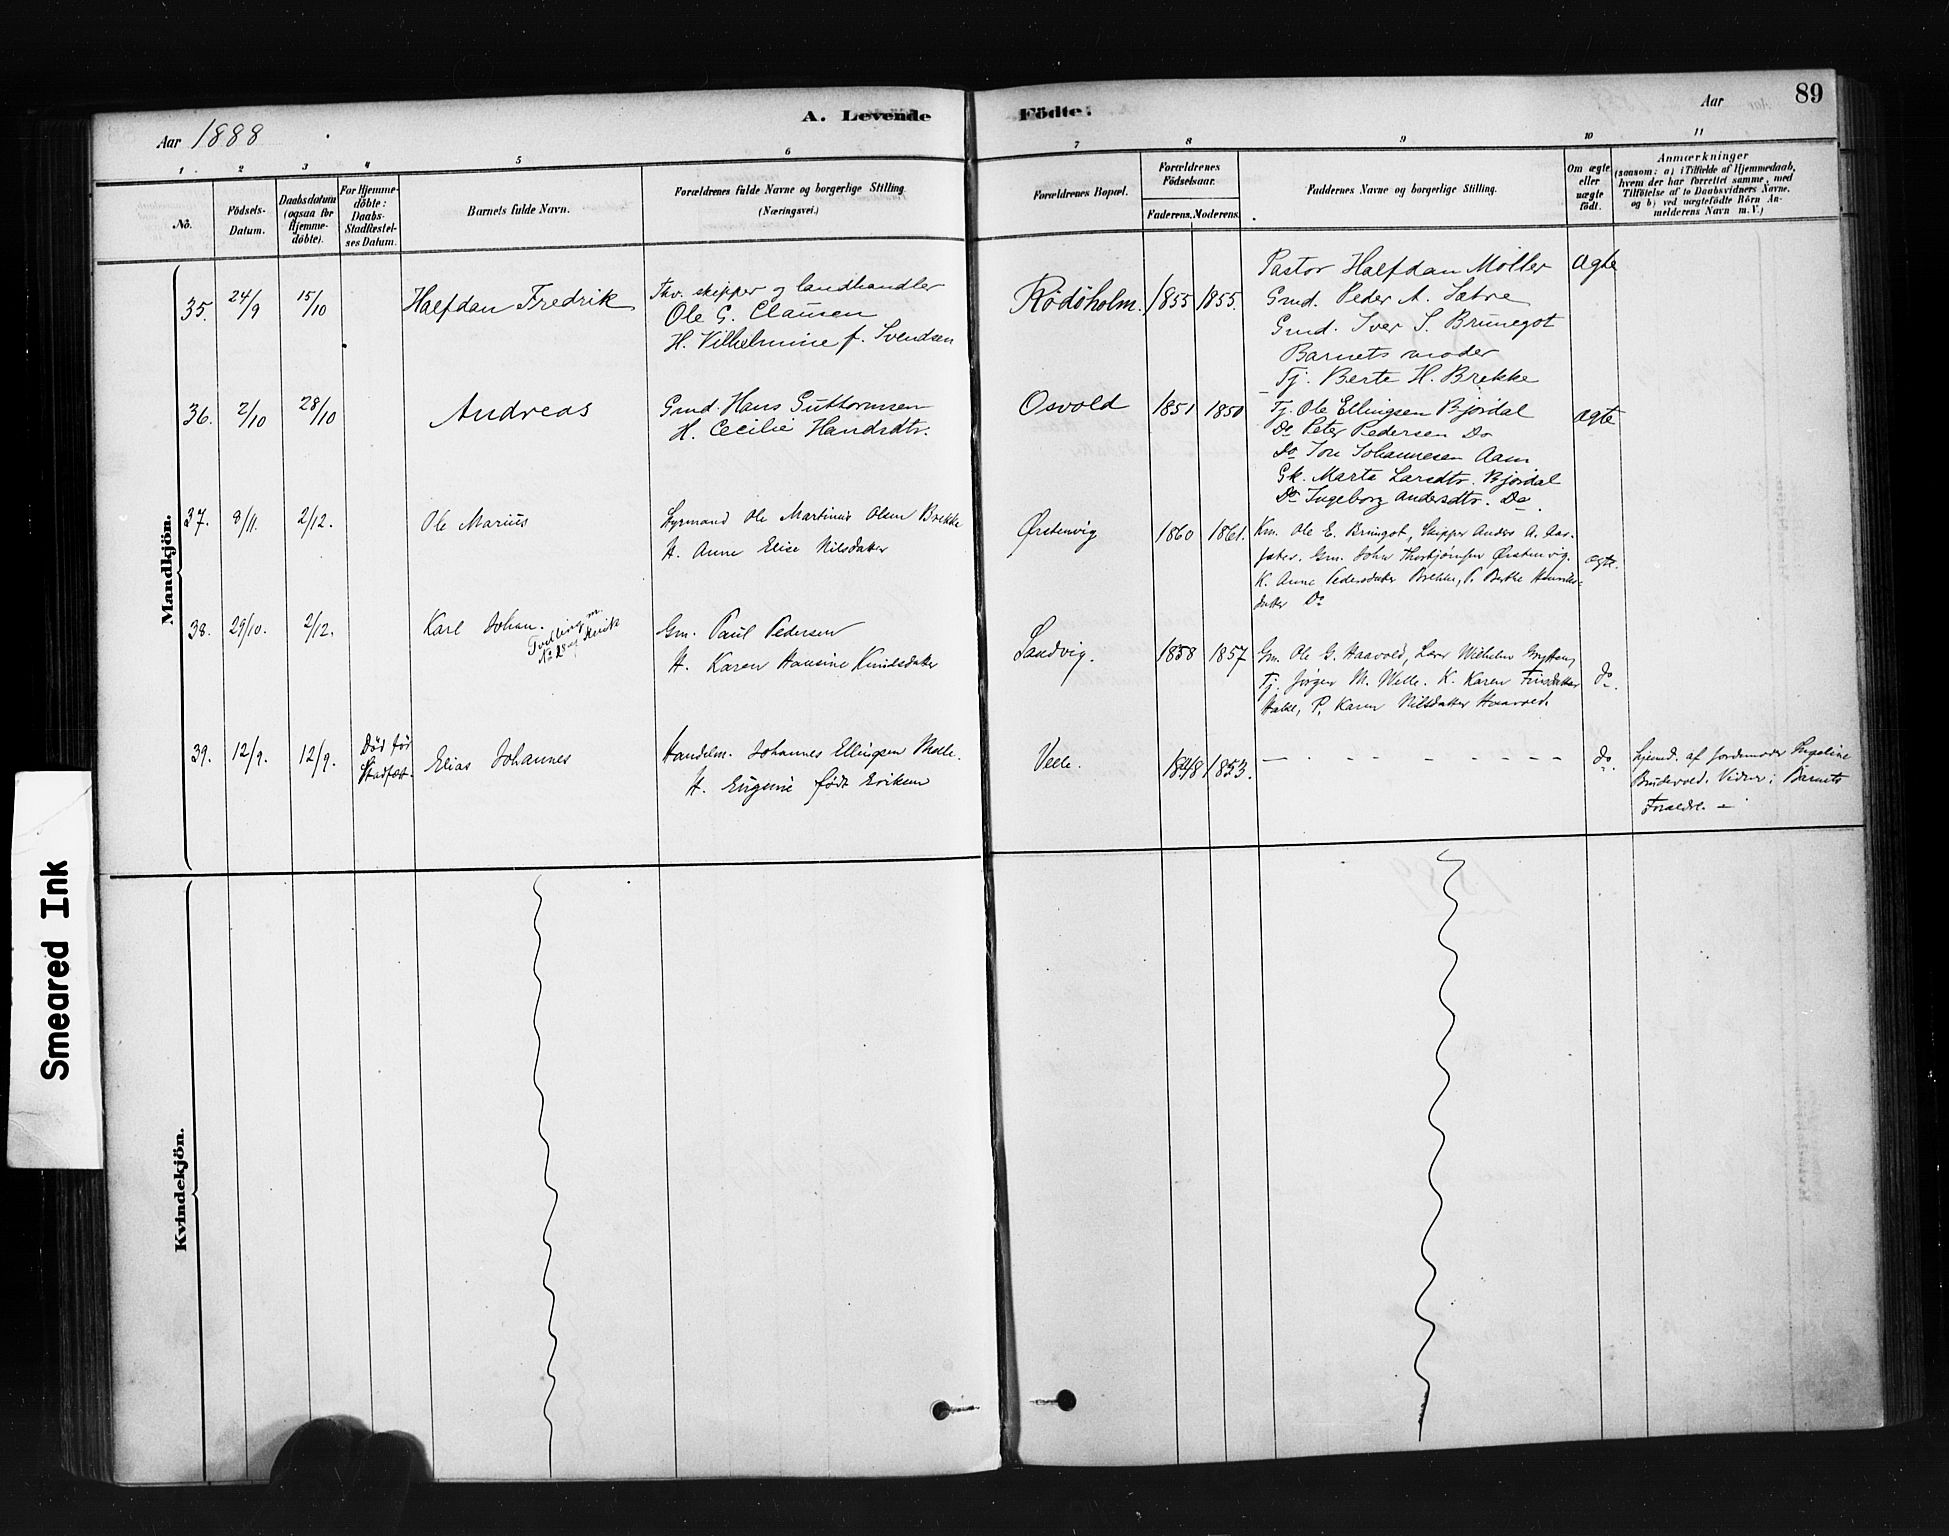 Aar 1888
A. Levende Födte.
Aar
89
1
2
3
4
5
6
7
8
9
10
11
No.
Födsels-
Datum.
Daabsdatum
(ogsaa for
Hjemme-
döbte).
For Hjemme-
döbte:
Daabs-
Stadfæstel-
ses Datum.
Barnets fulde Navn.
Forældrenes fulde Navne og borgerlige Stilling
(Næringsvei.)
Forældrenes Bopæl.
Forældrenes
Födselsaar.
Faderens. Moderens.
Faddernes Navne og borgerlige Stilling.
Om ægte
eller
uægte
födt.
Anmærkninger
(saasom: a) i Tilfælde af Hjemmedaab,
hvem der har forrettet samme, med
Tilföielse af to Daabsvidners Navne,
og b) ved uægtefödte Börn An-
melderens Navn m. V.)
Mandkjön.
35.
24/9
15/10
Halfdan Fredrik
skipper og landhandler
Ole G. Clausen
H. Vilhelmine f. Svendsen
Rödöholm.
1855
1855.
Pastor Halfdan Möller
Gmd. Peder A. Sætre
Gmd. Iver S. Brunegot
Barnets moder
Tj. Berte H. Brekke
ægte
36.
2/10
28/10
Andreas
Gmd. Hans Guttormsen
H. Cecilie Hansdtr.
Osvold
1851
1850
Tj. Ole Ellingsen Björdal
Do Peter Pedersen Do
Do Jon Johannesen Aam
Gk. Marta Larsdtr. Björdal
Do Ingeborg Andersdtr. Do.
ægte
37.
8/11.
2/12.
Ole Marius
Ole Martinus Olsen Brekke
H. Anne Elise Nilsdatter
Ørstenvig
1860
1861.
Km. Ole E. Brungot, Skipper Anders A. Aas-
Gm. Johan Ørstenvig.
K. Anne Pedersdatter Brekke, P. Berthe
datter Do
ægte.
38.
29/10.
2/12.
Karl Johan.
Tvilling m.
No 28 af Kvik
Gm. Paul Pedersen
H. Karen Hansine Knudsdatter
Sandvig.
1858
1857
Gm. Ole G. Haavold, Wilhelm
Tj. Jörgen M. Welle. K. Karen
P. Karen Nilsdatter Haavold.
do.
39.
12/9.
12/9.
Död för
Stadfæst.
Elias Johannes
Handelsm. Johannes Ellingsen Melle.
H. Eugenie født Eriksen
Velle.
1848
1853.
do.
Hjemd. af Jordemoder Ingeline
Brudevold. Vidner: Barnets
Forældre. –
Kvindekjön.
Smeared Ink